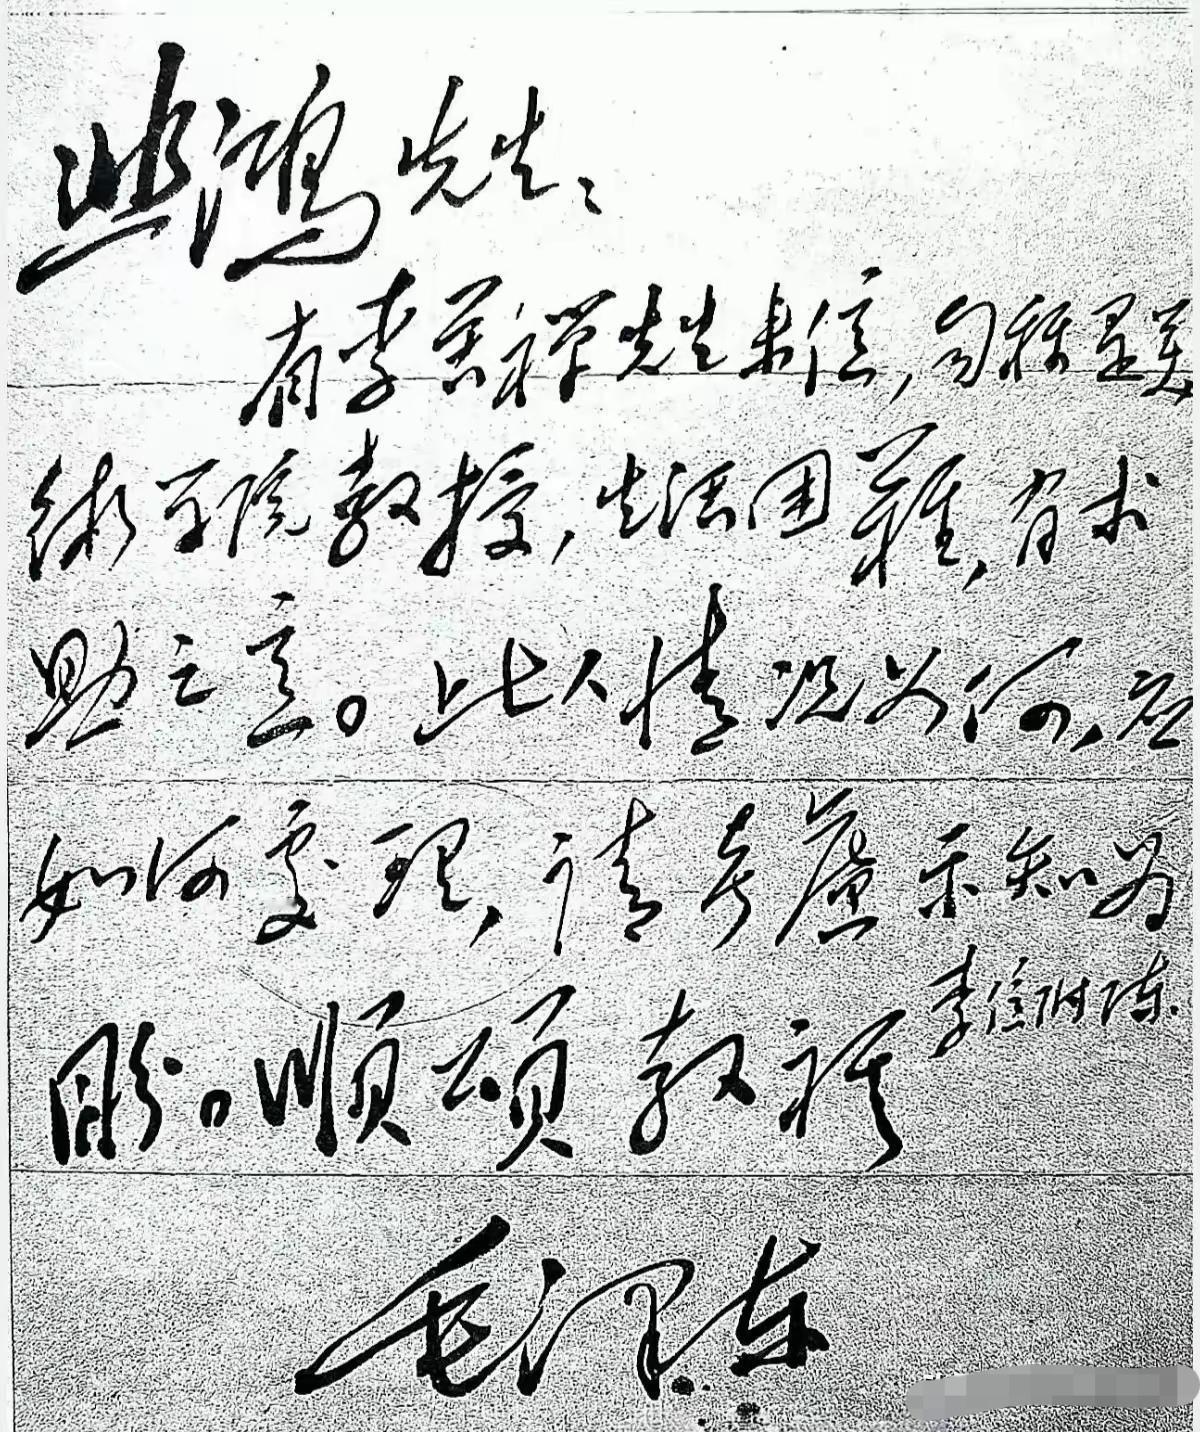 悲鸿先生：
有李苦禅先生来信，自称是美
術学院教授，生活困難，有求
助之意。此人情况如何，应
如何處理，请考慮示知为
盼。順頌教祺
李信附陈。
毛泽东